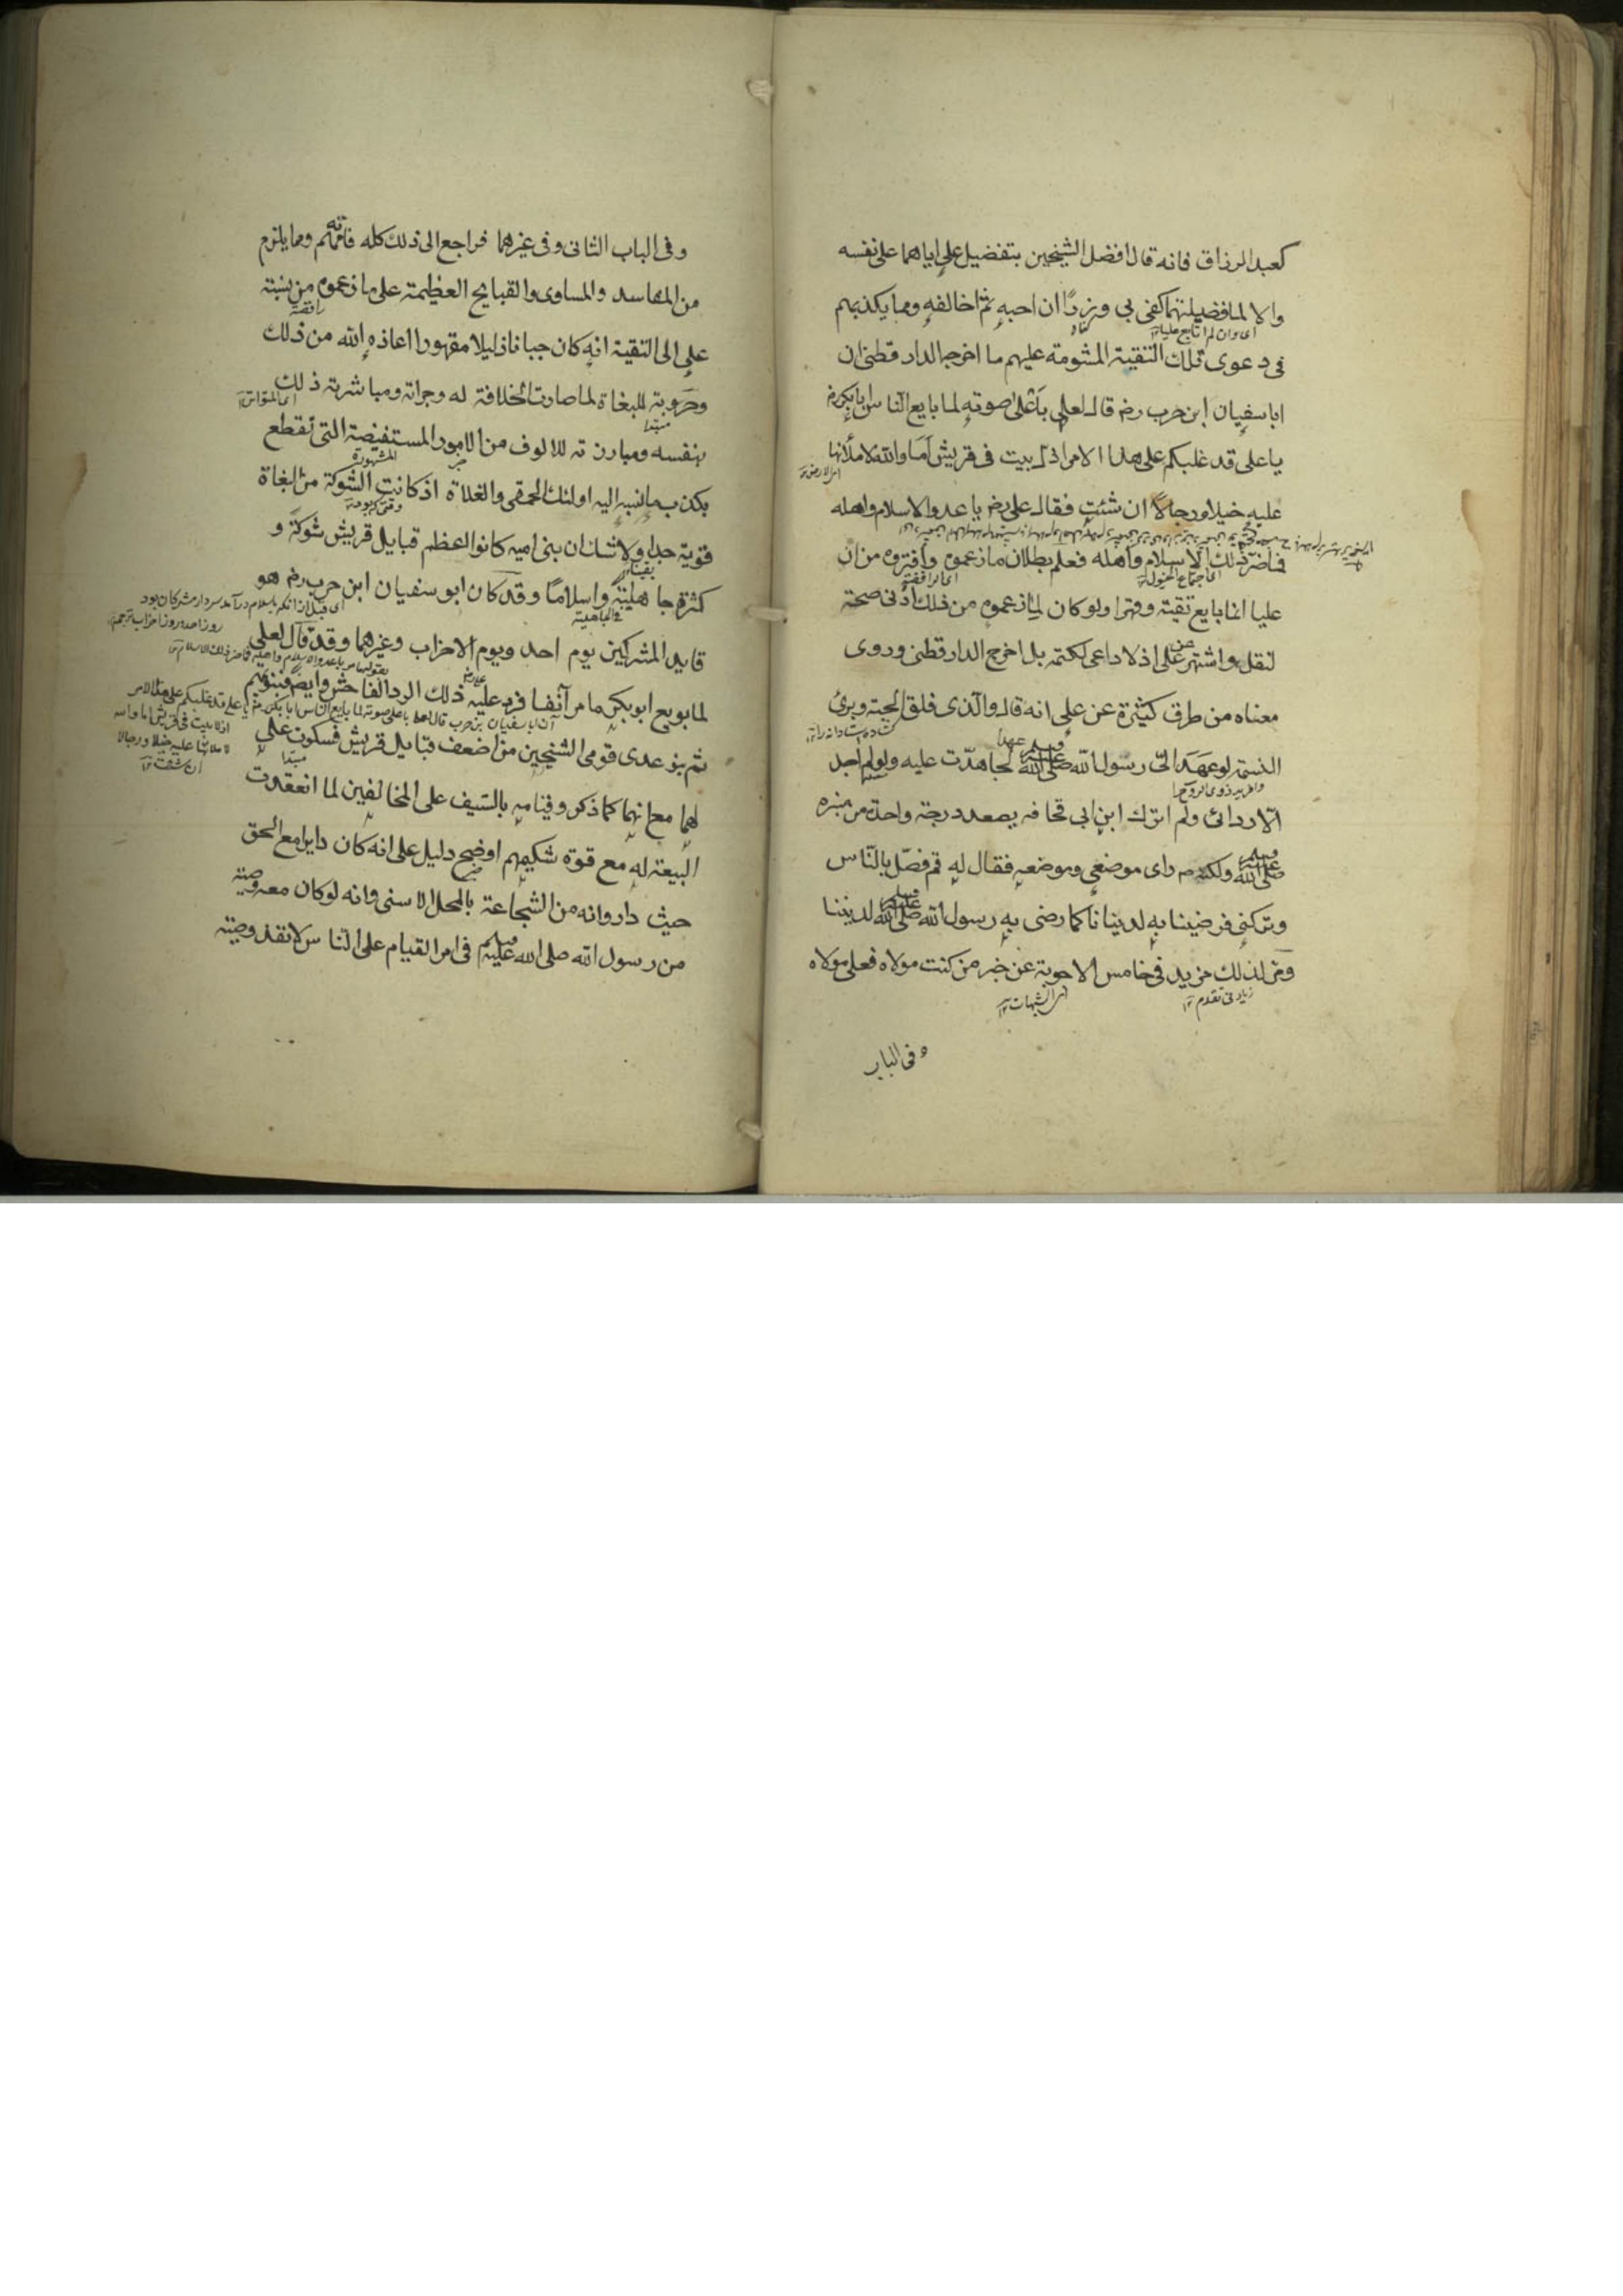 كعبد الرزاق فانه قال افضل الشيخين بتفضيل علي اياهما على نفسه
والا لما فضلتهما كفى بي وزرًا ان احبه ثم اخالفه ومما يكذبهم
اى وان لم اتابع عليا
فى دعوى تلك التقية المشومة عليهم ما اخرجه الدارقطنى ان
ابا سفيان ابن حرب رض قال لعلي باعلى صوته لما بايع الناس ابا بكر رض
يا على قد غلبكم على هذا الامر اذل بيت فى قريش اما والله لاملأنها
عليه خيلا ورجالًا ان شئت فقال على رض يا عدو الاسلام واهله
فما ضر ذلك الاسلام واهله فعلم بطلان ما زعموه وافتروه من ان
عليا انما بايع تقية وقهرا ولو كان لما زعموه من ذلك ادنى صحة
لنقل واشتهر عن على اذ لا داعى لكتمه بل اخرج الدارقطنى وروى
معناه من طرق كثيرة عن على انه قال والذى فلق الحبة وبرئ
النسمة لو عهد الىّ رسول الله صلى الله عليه وسلم عهدا لجاهدت عليه ولو لم اجد
الا ردائى ولم اترك ابن ابى قحافه يصعد درجة واحدة من منبره
صلى الله عليه وسلم ولكنه ص راى موضعى وموضعه فقال له قم فصلّ بالنّاس
وتركنى فرضينا به لدنيانا كما رضى به رسول الله صلى الله عليه وسلم لديننا
ومر لذلك مزيد فى خامس الاجوبة عن خبر من كنت مولاه فعلى مولاه
زيادتى تقدم ١٢
الشبهات ١٢
وفى الباب
وفى الباب الثانى وفى غيرهما فراجع الى ذلك كله فانه مهم ومما يلزم
من المفاسد والمساوى والقبايح العظيمة على ما زعموه من نسبة
على الى التقية انه كان جبانا ذليلا مقهورا اعاذه الله من ذلك
وحروبه للبغاة لما صارت الخلافة له وجراته ومباشرته ذلك
مبتدا
بنفسه ومبارزته للالوف من الامور المستفيضة التى تقطع
المشهورة
بكذب ما نسبه اليه اولئك الحمقى والغلاة اذ كانت الشوكة من البغاة
قوية جدا ولا شك ان بنى اميه كانوا اعظم قبايل قريش شوكة و
كثرة جاهلية واسلامًا وقد كان ابو سفيان ابن حرب رض هو
فى الجاهلية
قايد المشركين يوم احد ويوم الاحزاب وغيرهما وقد قال لعلي
لما بويع ابو بكر ما مر آنفا فرد عليه ذلك الرد الفاحش وايضا فبنو تيم
ثم بنو عدى قومى الشيخين من اضعف قبايل قريش فسكوت على
مبتدا
لهما مع انهما كما ذكر وقيامه بالسيف على المخالفين لما انعقدت
البيعة له مع قوة شكيمتهم اوضح دليل على انه كان دايرا مع الحق
حيث دار وانه من الشجاعة بالمحل الاسنى وانه لو كان معه وصية
من رسول الله صلى الله عليه وسلم فى امر القيام على الناس لانفذ وصية